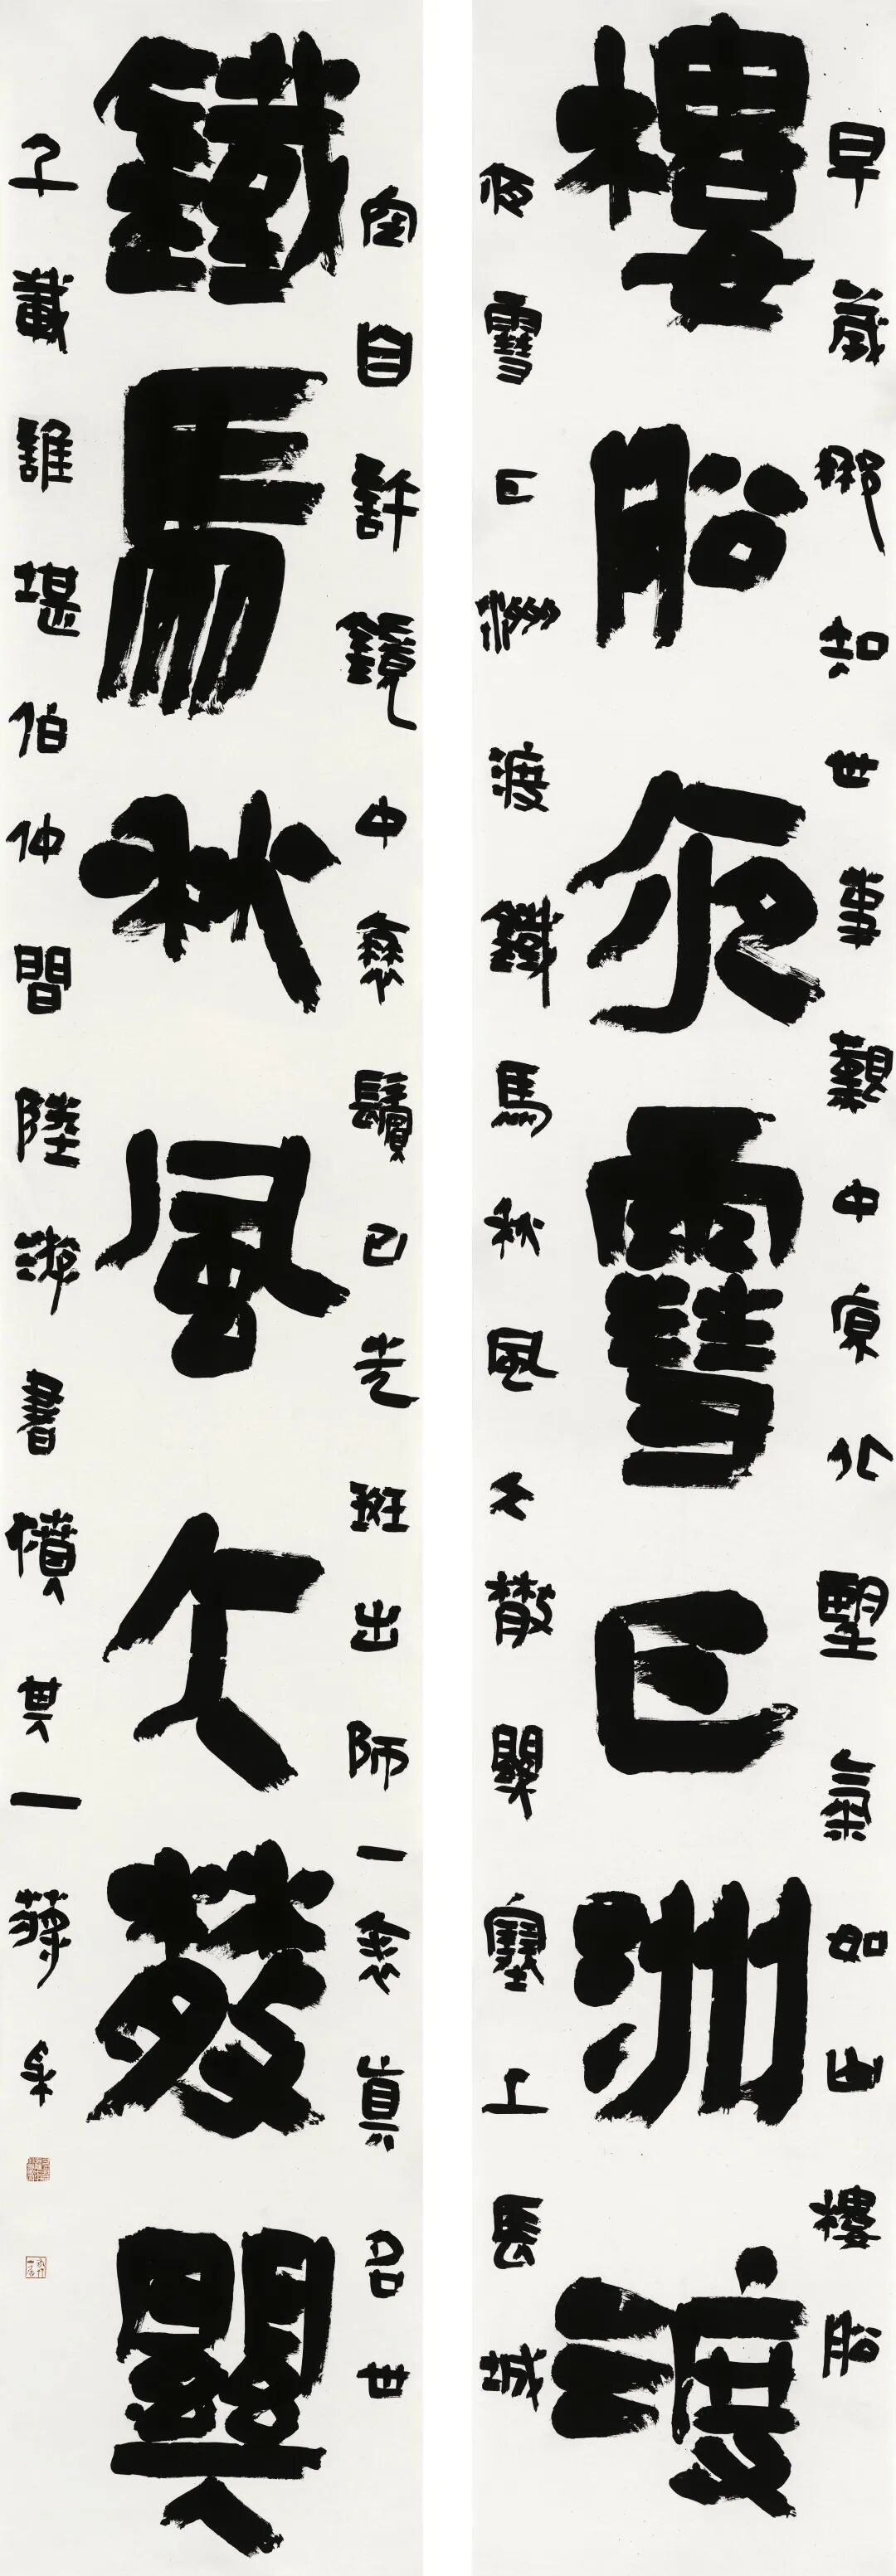 早歲那知世事艱中原北望氣如山樓船
樓船夜雪瓜洲渡
夜雪瓜洲渡鐵馬秋風大散關塞上長城
空自許鏡中衰鬢已先斑出師一表真名世
鐵馬秋風大散關
千載誰堪伯仲間陸游書憤其一